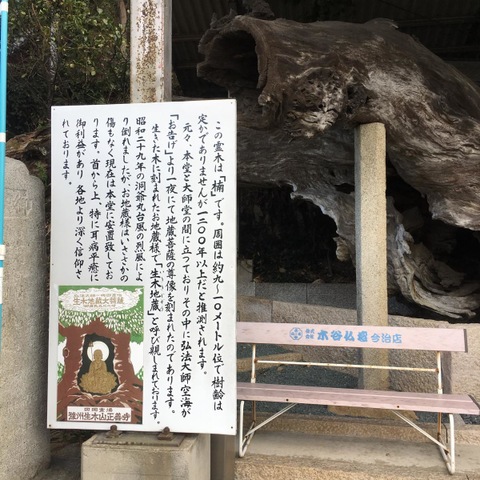 この霊木は「楠」です。周囲は約九〜10メートル位で樹齢は
定かでありませんが一二〇〇年以上だと推測されます。
元々、本堂と大師堂の間に立っておりその中に弘法大師空海が
「お告げ」より一夜にて地蔵菩薩の尊像を刻まれたのであります。
生きた木に刻まれたお地蔵様で「生木地蔵」と呼び親しまれております。
昭和二十九年の洞爺丸台風の烈風によ
り倒れましたが、お地蔵様はいささかの
傷もなく現在は本堂に安置致してお
ります。首から上、特に耳病平癒に
御利益があり各地より深く信仰さ
れております。
生木地蔵大菩薩
四国霊場
豫州生木山正善寺
株式会社 木谷仏壇 今治店